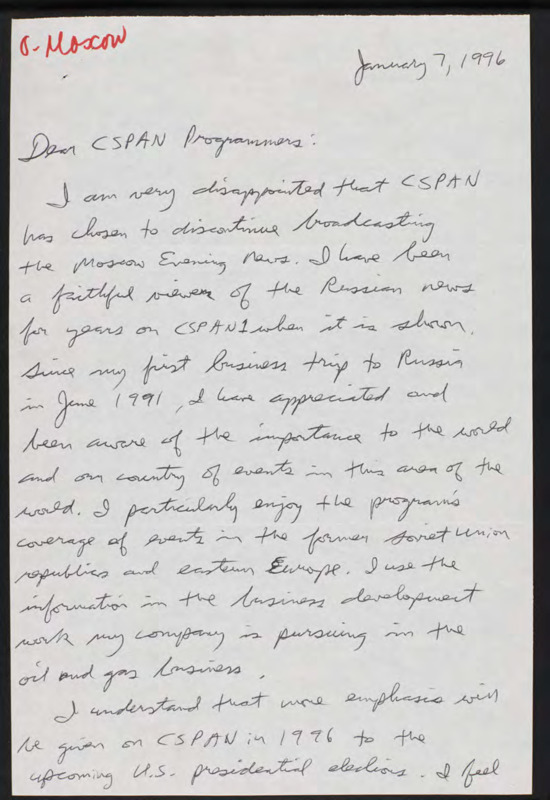 O-Moscow
January 7, 1996
Dear CSPAN Programmers:
I am very disappointed that CSPAN
has chosen to discontinue broadcasting
the Moscow Evening News. I have been
a faithful viewer of the Russian news
for years on CSPAN1 when it is shown.
Since my first business trip to Russia
in June 1991, I have appreciated and
been aware of the importance to the world
and our country of events in this area of the
world. I particularly enjoy the program's
coverage of events in the former Soviet Union
republics and eastern Europe. I use the
information in the business development
work my company is pursuing in the
oil and gas business.
I understand that more emphasis will
be given on CSPAN in 1996 to the
upcoming U.S. presidential elections. I feel